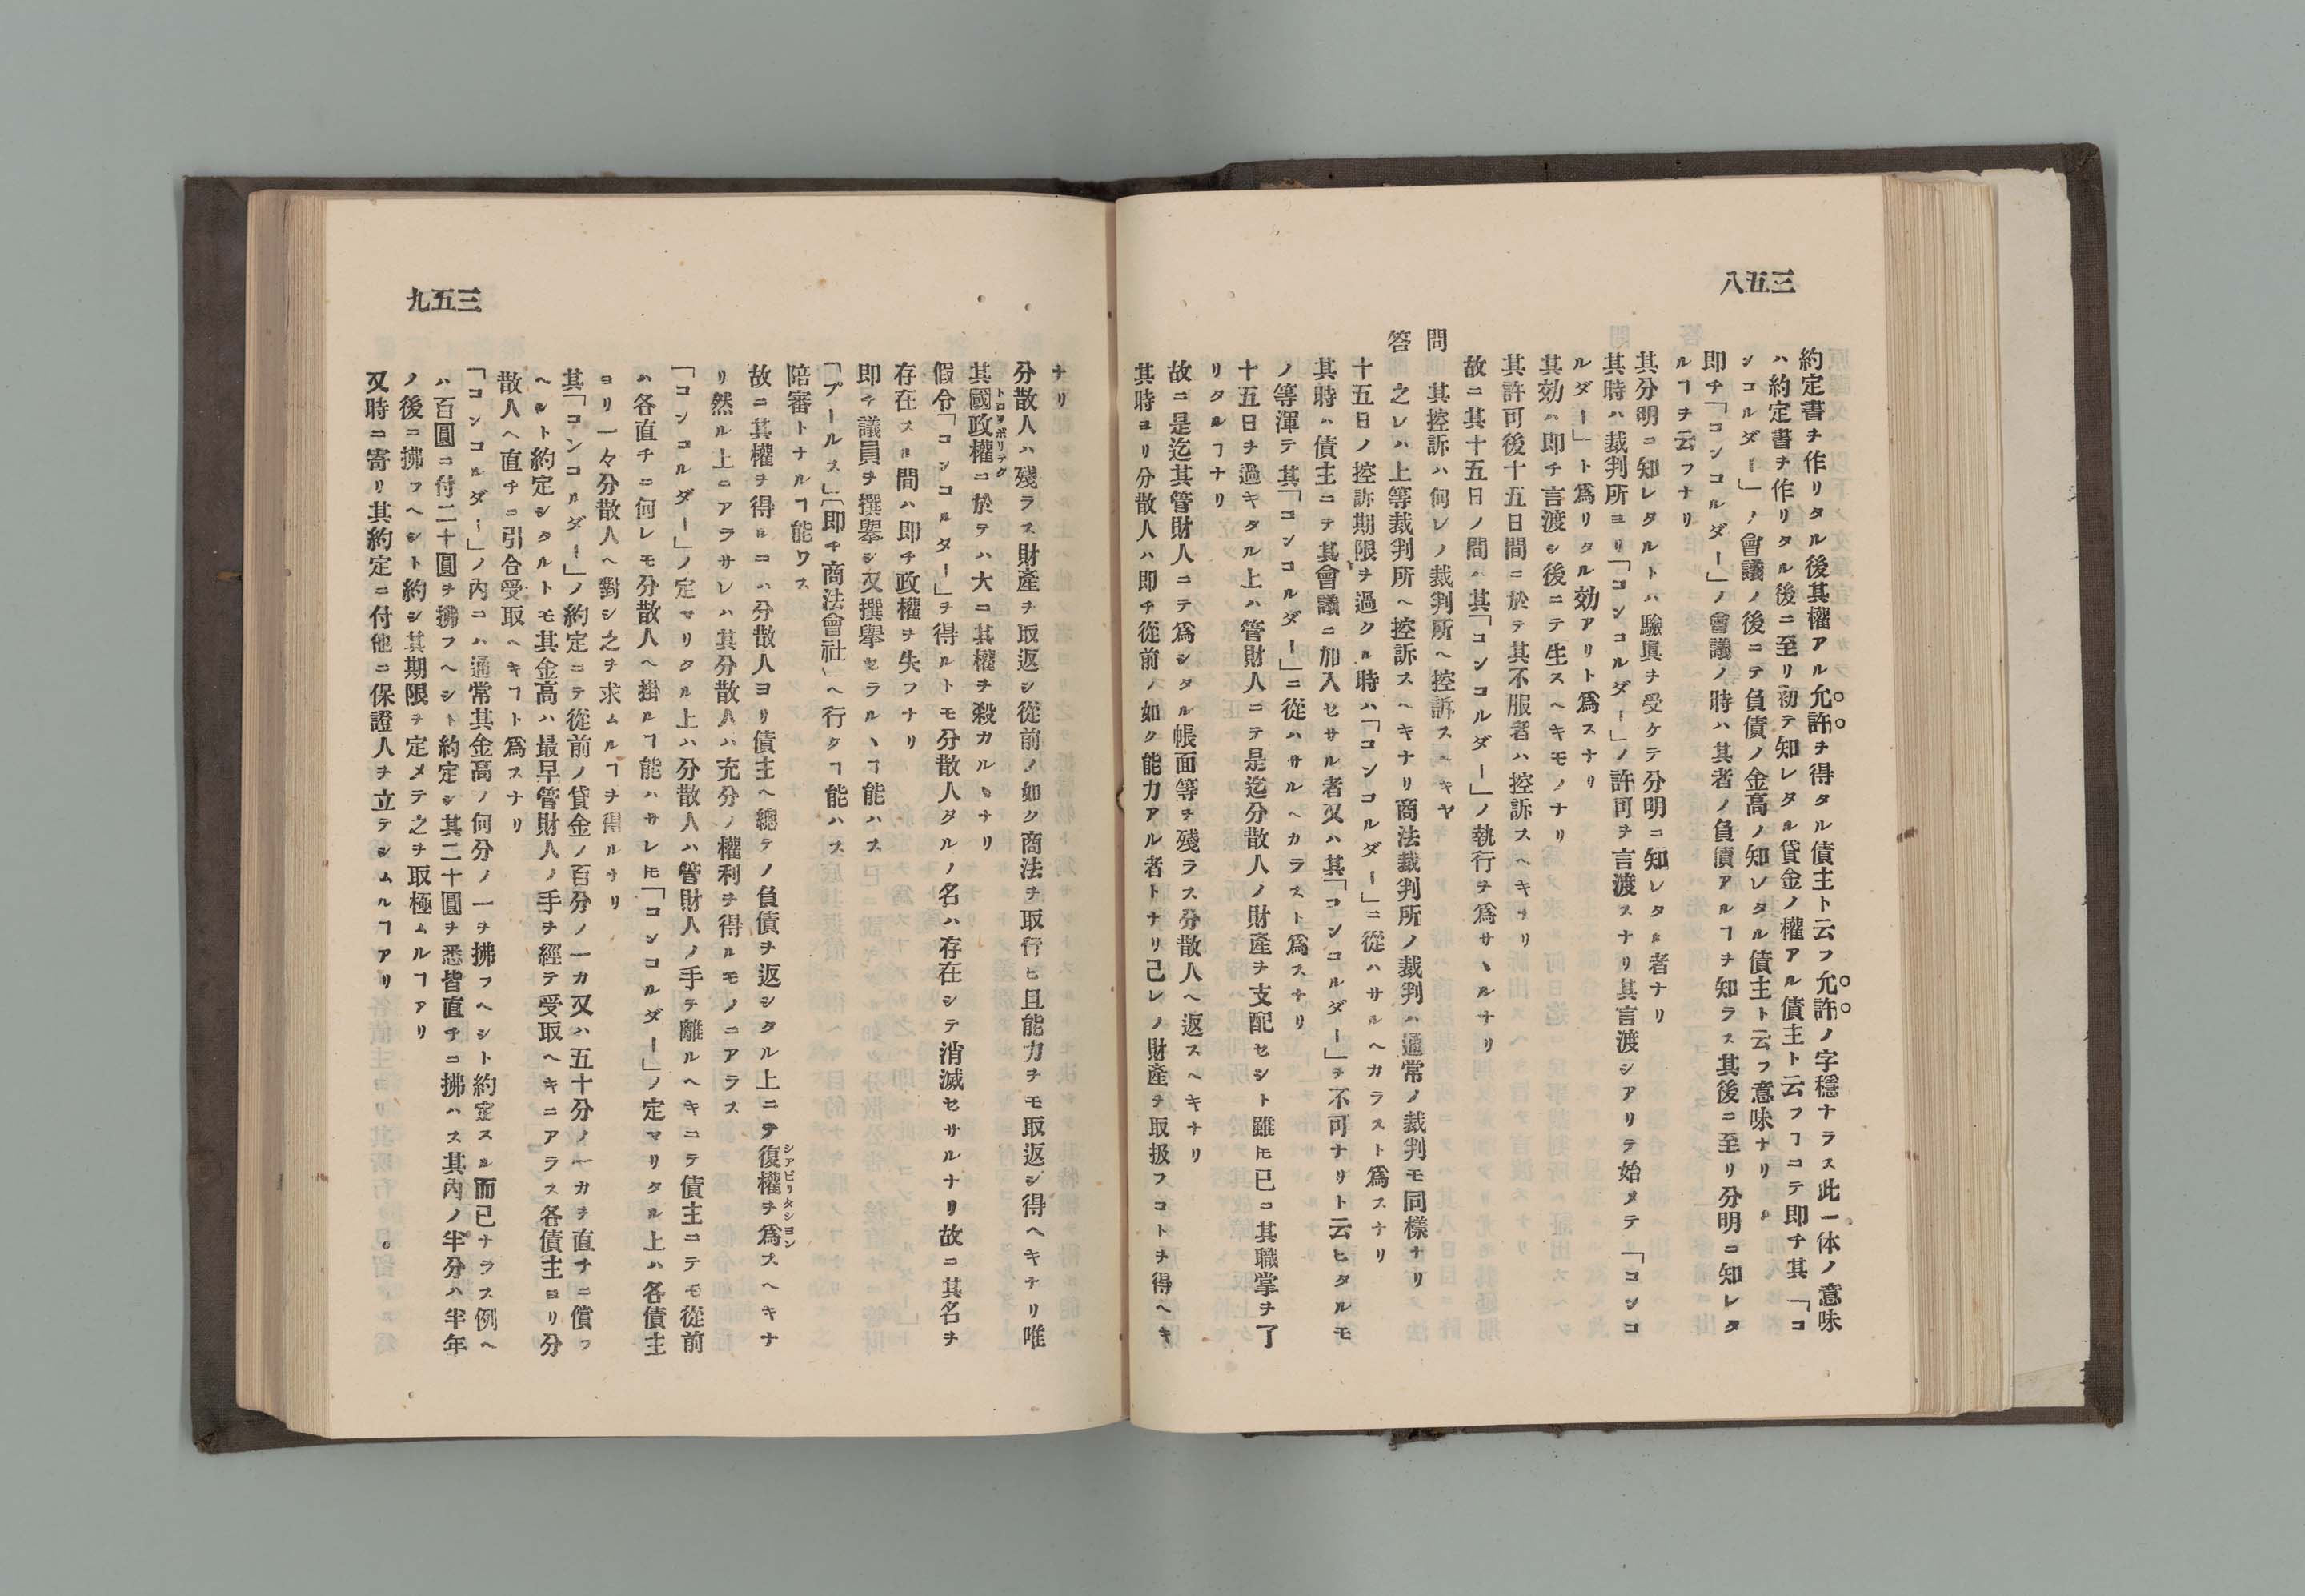 三五八
約定書ヲ作リタル後其權アル允許ヲ得タル債主ト云フ允許ノ字穩ナラス此一体ノ意味
ハ約定書ヲ作リタル後ニ至リ初テ知レタル貸金ノ權アル債主ト云フヿニテ即チ其「コ
ンコルダー」ノ會議ノ後ニテ負債ノ金高ノ知レタル債主ト云フ意味ナリ
即チ「コンコルダー」ノ會議ノ時ハ其者ノ負債アルヿヲ知ラス其後ニ至リ分明ニ知レタ
ルヿヲ云フナリ
其分明ニ知レタルトハ驗眞ヲ受ケテ分明ニ知レタル者ナリ
其時ハ裁判所ヨリ「コンコルダー」ノ許可ヲ言渡スナリ其言渡シアリテ始メテ「コンコ
ルダー」ト爲リタル効アリト爲スナリ
其効ハ即チ言渡シ後ニテ生スヘキモノナリ
其許可後十五日間ニ於テ其不服者ハ控訴スヘキナリ
故ニ其十五日ノ間ハ其「コンコルダー」ノ執行ヲ爲サヽルナリ
問 其控訴ハ何レノ裁判所ヘ控訴スヘキヤ
答 之レハ上等裁判所ヘ控訴スヘキナリ商法裁判所ノ裁判ハ通常ノ裁判モ同樣ナリ
十五日ノ控訴期限ヲ過クル時ハ「コンコルダー」ニ從ハサルヘカラスト爲スナリ
其時ハ債主ニテ其會議ニ加入セサル者又ハ其「コンコルダー」ヲ不可ナリト云ヒタルモ
ノ等渾テ其「コンコルダー」ニ從ハサルヘカラスト爲スナリ
十五日ヲ過キタル上ハ管財人ニテ是迄分散人ノ財產ヲ支配セシト雖𪜈已ニ其職掌ヲ了
リタルヿナリ
故ニ是迄其管財人ニテ爲シタル帳面等ヲ殘ラス分散人ヘ返スヘキナリ
其時ヨリ分散人ハ即チ從前ノ如ク能力アル者トナリ己レノ財產ヲ取扱フコトヲ得ヘキ
三五九
ナリ
分散人ハ殘ラス財產ヲ取返シ從前ノ如ク商法ヲ取行ヒ且能力ヲモ取返シ得ヘキナリ唯
其國政權ニ於テハ大ニ其權ヲ殺カルヽナリ
假令「コンコルダー」ヲ得ルトモ分散人タルノ名ハ存在シテ消滅セサルナリ故ニ其名ヲ
存在スル間ハ即チ政權ヲ失フナリ
即チ議員ヲ撰擧シ又撰擧セラルヽヿ能ハス
「ブールス」〔即チ商法會社〕ヘ行クヿ能ハス
陪審トナルヿ能ワス
故ニ其權ヲ得ルニハ分散人ヨリ債主ヘ總テノ負債ヲ返シタル上ニテ復權ヲ爲スヘキナ
リ然ル上ニアラサレハ其分散人ハ充分ノ權利ヲ得ルモノニアラス
「コンコルダー」ノ定マリタル上ハ分散人ハ管財人ノ手ヲ離ルヘキニテ債主ニテモ從前
ハ各直チニ何レモ分散人ヘ掛ルヿ能ハサレ𪜈「コンコルダー」ノ定マリタル上ハ各債主
ヨリ一々分散人ヘ對シ之ヲ求ムルヿヲ得ルナリ
其「コンコルダー」ノ約定ニテ從前ノ貸金ノ百分ノ一カ又ハ五十分ノ一カヲ直チニ償フ
ヘルト約定シタルトモ其金高ハ最早管財人ノ手ヲ經テ受取ヘキニアラス各債主ヨリ分
散人ヘ直チニ引合受取ヘキヿト爲スナリ
「コンコルダー」ノ内ニハ通常其金高ノ何分ノ一ヲ拂フヘシト約定スル而已ナラス例ヘ
ハ百圓ニ付二十圓ヲ拂フヘシト約定シ其二十圓ヲ悉皆直チニ拂ハス其内ノ半分ハ半年
ノ後ニ拂フヘシト約シ其期限ヲ定メテ之ヲ取極ムルヿアリ
又時ニ寄リ其約定ニ付他ニ保證人ヲ立テシムルヿアリ